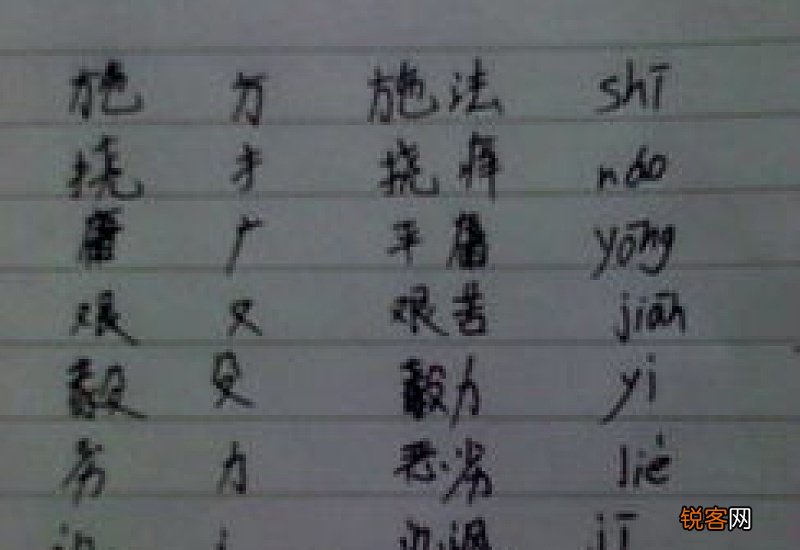 施 方 施法 shī
挠 扌 挠痒 náo
庸 广 平庸 yōng
艰 又 艰苦 jiān
毅 殳 毅力 yì
劣 力 恶劣 liè
jī
锐客网